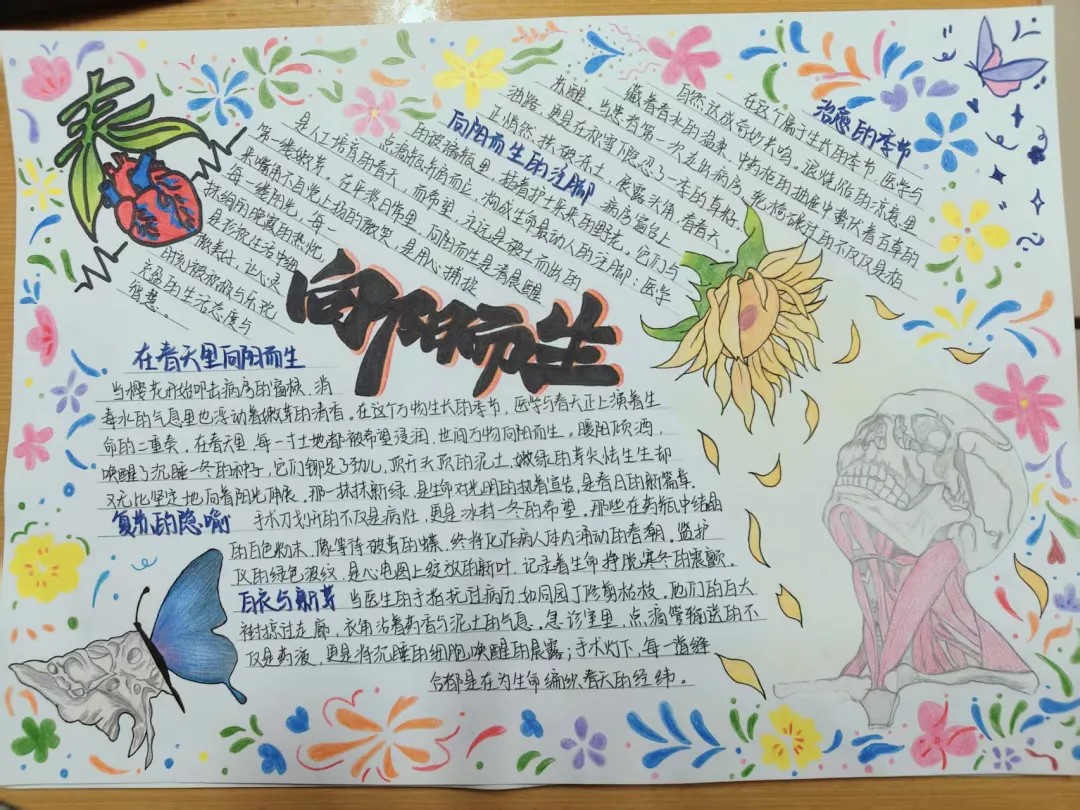 向阳而生
治愈的季节
在这个属于生长的季节，医学与
自然达成奇妙共鸣。退烧贴的凉意里
藏着春水的温柔，中药柜的抽屉中蛰伏着百草的
苏醒。当患者第一次走出病房，轮椅碾过的不仅仅是柏
油路，更是在初雪下隐忍了一冬的草籽，
正悄然拱破冻土，展露头角，看春天。
向阳而生的注脚
病房窗台上
的玻璃瓶里，插着护士采来的野花，它们与
点滴瓶并肩而立，构成生命最动人的注脚：医学
是人工培育的春天，而希望，永远是破土而出的
第一缕嫩芽。在平淡日常里，向阳而生是清晨醒
来嘴角不自觉上扬的微笑，是用心捕捉
每一缕阳光，每一
抹绚丽晚霞的热忱，
是珍视生活中细
微美好，让心灵
的积极与乐观
充盈的生活态度与
智慧。
在春天里向阳而生
当樱花开始叩击病房的窗棂，消
毒水的气息里也浮动着嫩芽的清香。在这个万物生长的季节，医学与春天正上演着生
命的二重奏。在春天里，每一寸土地都被希望浸润，世间万物向阳而生。暖阳倾洒，
唤醒了沉睡一冬的种子，它们铆足了劲儿，顶开头顶的泥土，嫩绿的芽尖怯生生却
又无比坚定地向着阳光伸展。那一抹抹新绿，是生命对光明的执着宣告，是春日的新篇章。
复苏的隐喻
手术刀划开的不仅是病灶，更是冰封一冬的希望。那些在药瓶中结晶
的白色粉末，像等待破茧的蝶，终将化作病人体内涌动的春潮。监护
仪的绿色波纹，是心电图上绽放的新叶，记录着生命挣脱寒冬的震颤。
白衣与新芽
当医生的手指抚过病历如同园丁修剪枯枝。他们的白大
褂掠过走廊，衣角沾着药香与泥土的气息。急诊室里，点滴管输送的不
仅是药液，更是将沉睡的细胞唤醒的晨露；手术灯下，每一道缝
合都是在为生命编织春天的经纬。